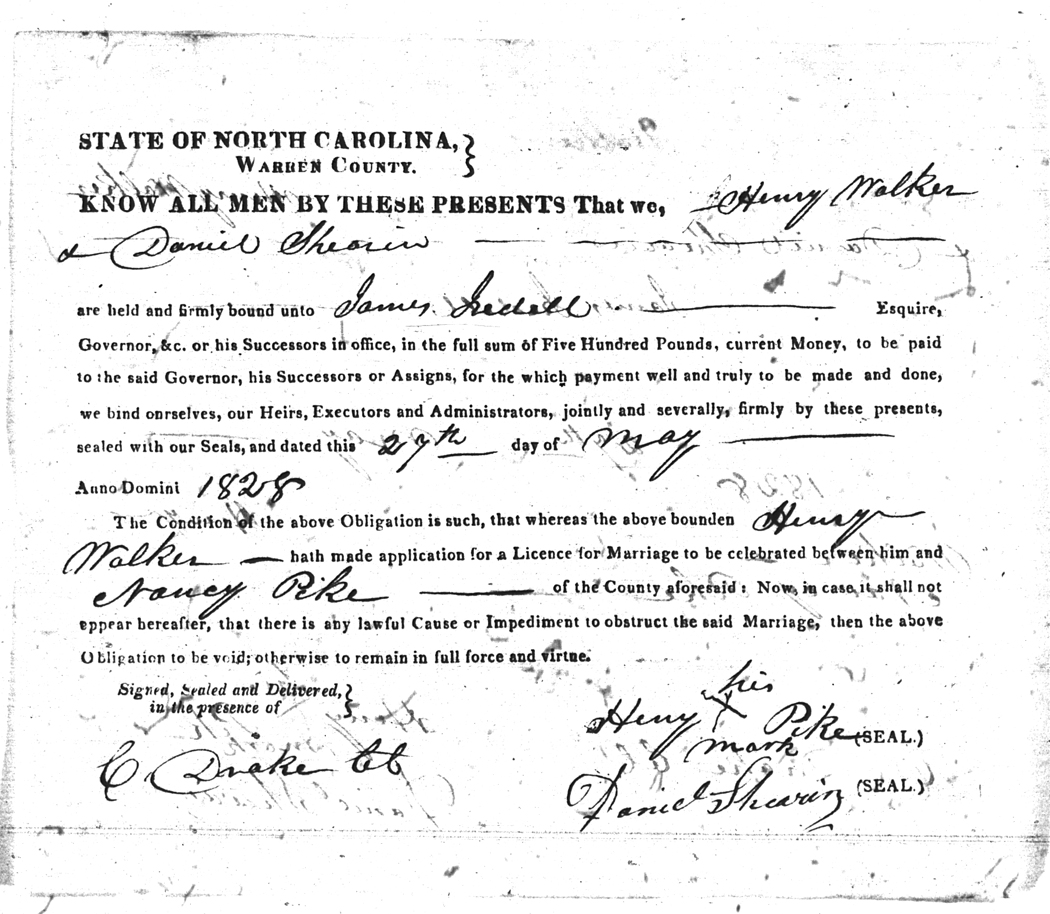 STATE OF NORTH CAROLINA,
WARREN COUNTY.
KNOW ALL MEN BY THESE PRESENTS That we, Henry Walker
& Daniel Shearin
are held and firmly bound unto James Iredell Esquire,
Governor, &c. or his Successors in office, in the full sum of Five Hundred Pounds, current Money, to be paid
to the said Governor, his Successors or Assigns, for the which payment well and truly to be made and done,
we bind onrselves, our Heirs, Executors and Administrators, jointly and severally, firmly by these presents,
sealed with our Seals, and dated this 27th day of May
Anno Domini 1828
The Condition of the above Obligation is such, that whereas the above bounden Henry
Walker hath made application for a Licence for Marriage to be celebrated between him and
Nancy Pike of the County aforesaid: Now, in case it shall not
appear hereafter, that there is any lawful Cause or Impediment to obstruct the said Marriage, then the above
Obligation to be void; otherwise to remain in full force and virtue.
Signed, Sealed and Delivered,
in the presence of
his
Henry X Pike (SEAL.)
mark
C. Drake CC
Daniel Shearin (SEAL.)